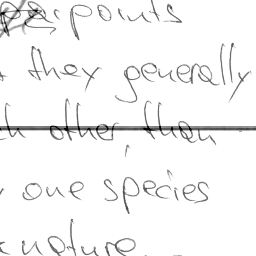 pairpoints
they generally
other than
one species
nature.